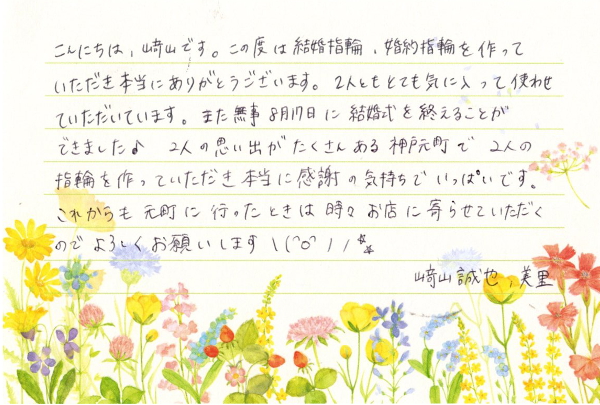 こんにちは、﨑山です。この度は結婚指輪、婚約指輪を作って
いただき本当にありがとうございます。2人ともとても気に入って使わせ
ていただいています。また無事8月17日に結婚式を終えることが
できました♪ 2人の思い出がたくさんある神戸元町で2人の
指輪を作っていただき本当に感謝の気持ちでいっぱいです。
これからも元町に行ったときは時々お店に寄らせていただく
のでよろしくお願いします\(^o^)/☆☆
﨑山誠也、美里